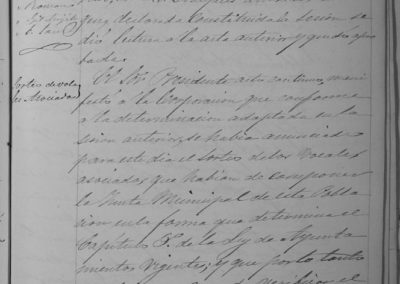 Sorteo de voca-
les Asociados
que declarada constituida la sesion se
dió lectura a la acta anterior y quedó apro
bada.
El Sor. Presidente acto continuo, mani
festó a la Corporacion que conforme
a la determinacion adoptada en la
sesion anterior, se habia anunciado
para este dia el sorteo de los Vocales
asociados que habian de componer
la Junta Municipal de esta Pobla
cion en la forma que determina el
Capitulo de la Ley de Ayunta
mientos vigente; y que por lo tanto
el